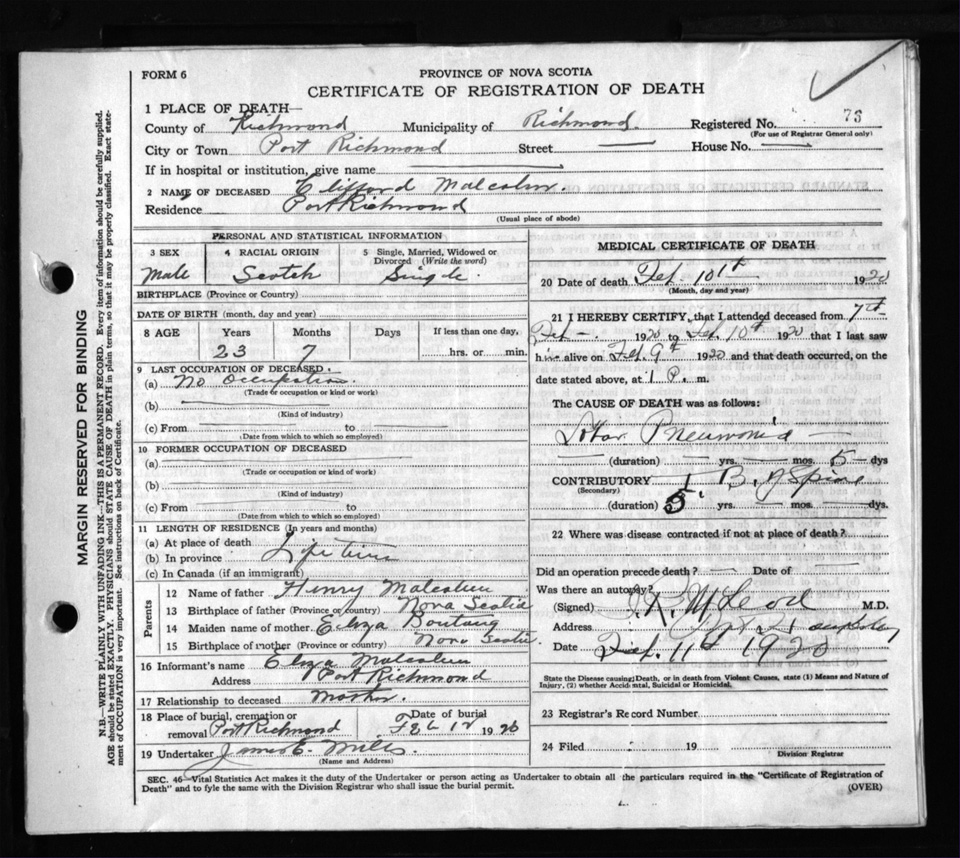 FORM 6
PROVINCE OF NOVA SCOTIA
CERTIFICATE OF REGISTRATION OF DEATH
1 PLACE OF DEATH—
County of Richmond Municipality of Richmond. Registered No. 73
(For use of Registrar General only)
City or Town Port Richmond Street — House No. —
If in hospital or institution, give name
2 NAME OF DECEASED Clifford Malcolm.
Residence Port Richmond
(Usual place of abode)
PERSONAL AND STATISTICAL INFORMATION
3 SEX Male
4 RACIAL ORIGIN Scotch
5 Single, Married, Widowed or Divorced (Write the word) Single.
BIRTHPLACE (Province or Country)
DATE OF BIRTH (month, day and year)
8 AGE Years Months Days If less than one day,
23 7 hrs. or min.
9 LAST OCCUPATION OF DECEASED
(a) No Occupation.
(Trade or occupation or kind or work)
(b)
(Kind of industry)
(c) From to
(Date from which to which so employed)
10 FORMER OCCUPATION OF DECEASED
(a)
(Trade or occupation or kind of work)
(b)
(Kind of industry)
(c) From to
(Date from which to which so employed)
11 LENGTH OF RESIDENCE (In years and months)
(a) At place of death
(b) In province Life time
(c) In Canada (if an immigrant)
Parents
12 Name of father Henry Malcolm
13 Birthplace of father (Province or country) Nova Scotia
14 Maiden name of mother Eliza
15 Birthplace of mother (Province or country) Nova Scotia.
16 Informant's name Eliza Malcolm
Address Port Richmond
17 Relationship to deceased Mother.
18 Place of burial, cremation or removal Port Richmond Date of burial Feb 12 1920
19 Undertaker James C. Mills
(Name and Address)
MEDICAL CERTIFICATE OF DEATH
20 Date of death Feb. 10th 1920
(Month, day and year)
21 I HEREBY CERTIFY, that I attended deceased from 7th
Feb— 1920 to Feb. 10th 1920 that I last saw
him alive on Feb. 9th 1920 and that death occurred, on the
date stated above, at 1 P. m.
The CAUSE OF DEATH was as follows:
Lobar Pneumonia —
(duration) — yrs. — mos. 5 — dys
CONTRIBUTORY of Spine
(Secondary)
(duration) 5 yrs. mos. dys.
22 Where was disease contracted if not at place of death?
Did an operation precede death? — Date of —
Was there an autopsy?
(Signed) McLeod M.D.
Address
Date Feb. 11th 1920
State the Disease causing Death, or in death from Violent Causes, state (1) Means and Nature of
Injury, (2) whether Accidental, Suicidal or Homicidal.
23 Registrar's Record Number
24 Filed 19
Division Registrar
SEC. 46—Vital Statistics Act makes it the duty of the Undertaker or person acting as Undertaker to obtain all the particulars required in the "Certificate of Registration of
Death" and to fyle the same with the Division Registrar who shall issue the burial permit. (OVER)
MARGIN RESERVED FOR BINDING
N.B.—WRITE PLAINLY WITH UNFADING INK—THIS IS A PERMANENT RECORD. Every item of information should be carefully supplied.
AGE should be stated EXACTLY. PHYSICIANS should STATE CAUSE OF DEATH in plain terms, so that it may be properly classified. Exact state-
ment of OCCUPATION is very important. See instructions on back of Certificate.